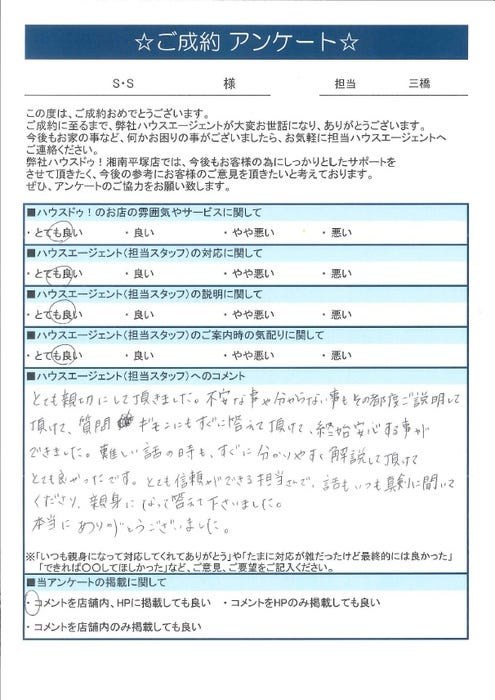 ☆ご成約 アンケート☆
S・S 様 担当 三橋
この度は、ご成約おめでとうございます。
ご成約に至るまで、弊社ハウスエージェントが大変お世話になり、ありがとうございます。
今後もお家の事など、何かお困りの事がございましたら、お気軽に担当ハウスエージェントへ
ご連絡ください。
弊社ハウスドゥ！湘南平塚店では、今後もお客様の為にしっかりとしたサポートを
させて頂きたく、今後の参考にお客様のご意見を頂きたいと考えております。
ぜひ、アンケートのご協力をお願い致します。
■ハウスドゥ！のお店の雰囲気やサービスに関して
・とても良い ・良い ・やや悪い ・悪い
■ハウスエージェント(担当スタッフ)の対応に関して
・とても良い ・良い ・やや悪い ・悪い
■ハウスエージェント(担当スタッフ)の説明に関して
・とても良い ・良い ・やや悪い ・悪い
■ハウスエージェント(担当スタッフ)のご案内時の気配りに関して
・とても良い ・良い ・やや悪い ・悪い
■ハウスエージェント(担当スタッフ)へのコメント
とても親切にして頂きました。不安な事や分からない事もその都度ご説明して
頂けて、質問 ギモンにもすぐに答えて頂けて、終始安心する事が
できました。難しい話の時も、すぐに分かりやすく解説して頂けて
とても良かったです。とても信頼ができる担当さんで、話もいつも真剣に聞いて
くださり、親身になって答えて下さいました。
本当にありがとうございました。
※「いつも親身になって対応してくれてありがとう」や「たまに対応が雑だったけど最終的には良かった」
「できれば〇〇してほしかった」など、ご意見、ご要望をご記入ください。
■当アンケートの掲載に関して
・コメントを店舗内、HPに掲載しても良い ・コメントをHPのみ掲載しても良い
・コメントを店舗内のみ掲載しても良い